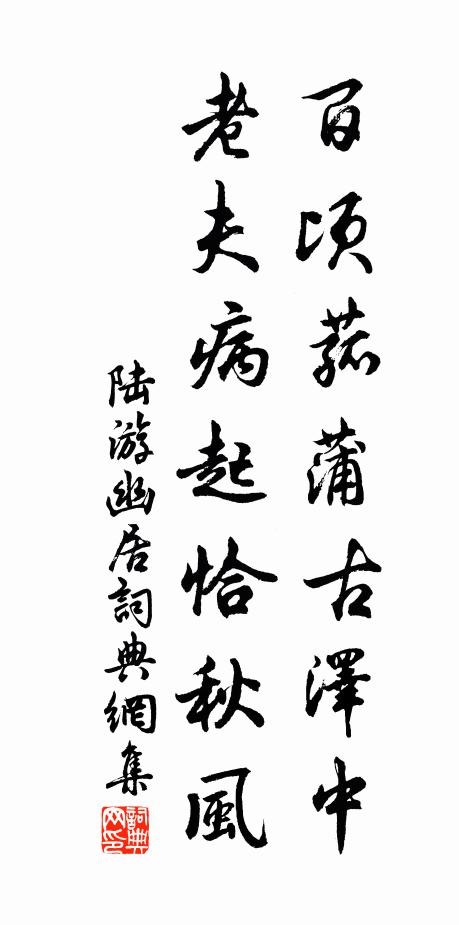 百頃菰蒲古澤中
老夫病起恰秋風
陸游幽居詞典網集
詞典网印